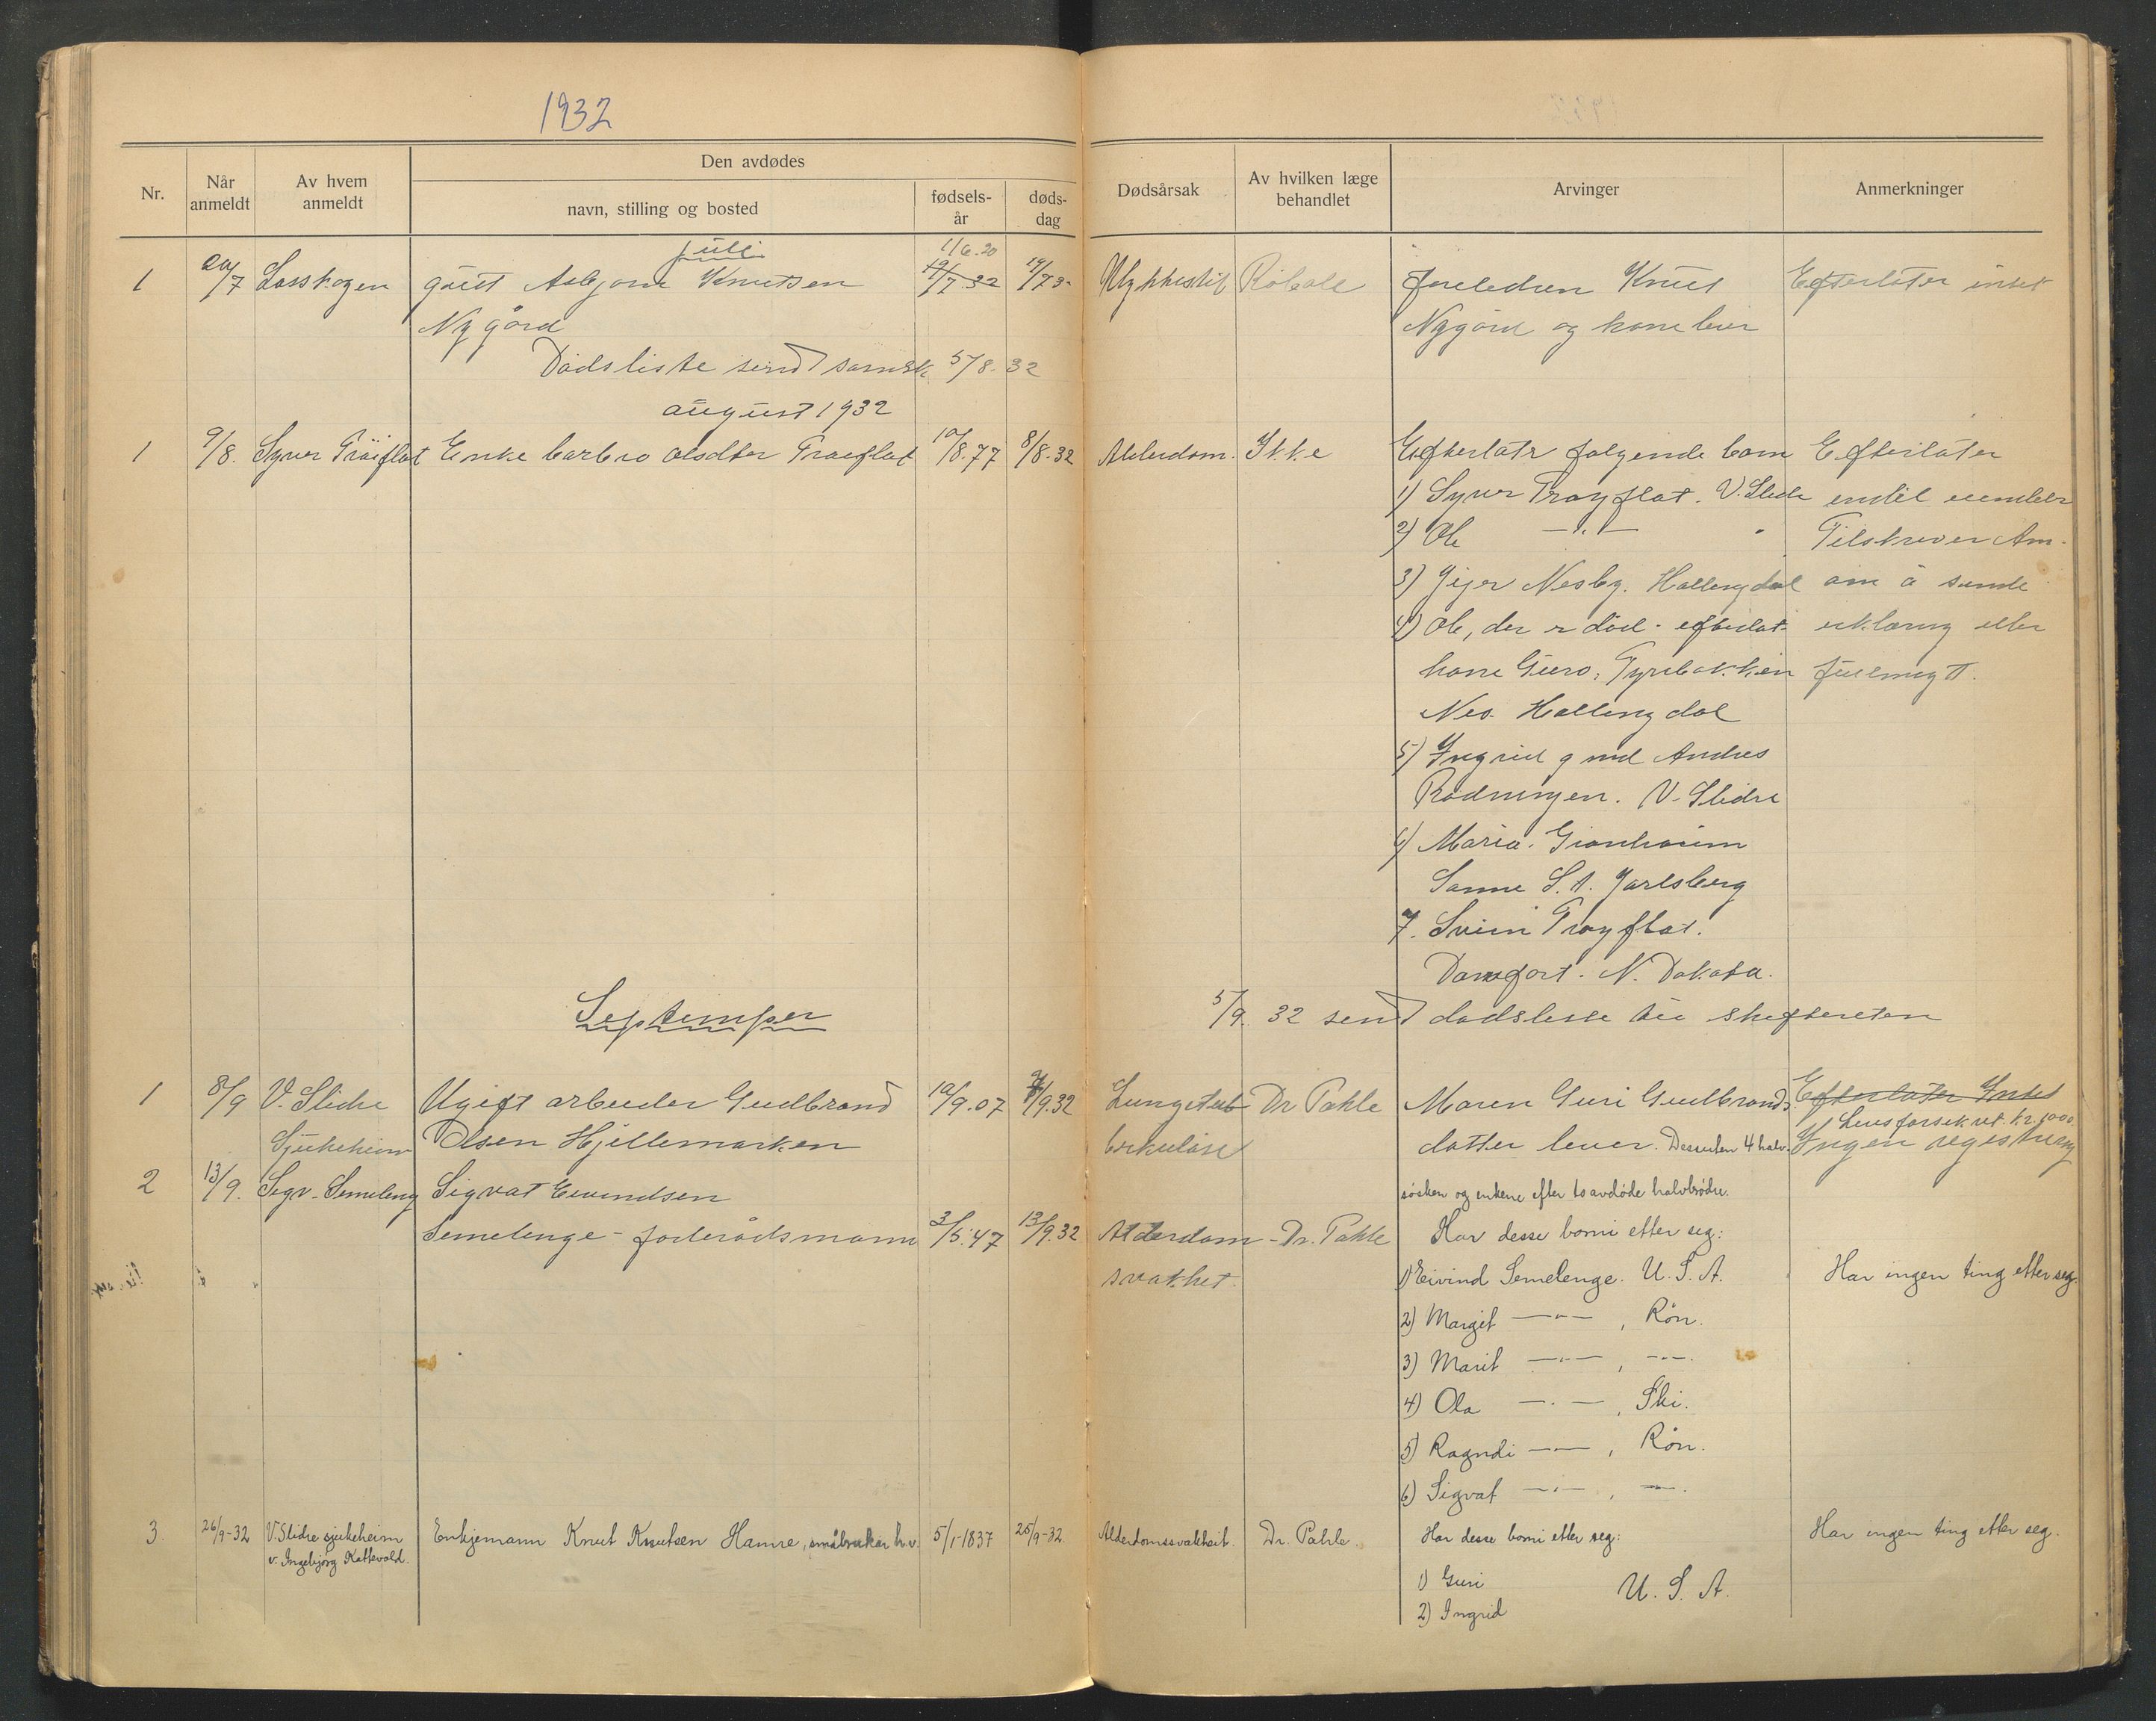 1932
Nr.
Når anmeldt
Av hvem anmeldt
Den avdødes
navn, stilling og bosted
fødsels-år
døds-dag
Dødsårsak
Av hvilken læge behandlet
Arvinger
Anmerkninger
Juli
1 20/7 gutt Asbjørn Knutsen 11.6.20 19/7 32 19/7 3 foreldren Knut Efterlater intet
Nygård Nygård og kone lever
Dødsliste send 5/8. 32
august 1932
1 9/8. Syver Enke barbro Olsdter 10/8.77 8/8-32 Alderdom. Ikke Efterlatr følgende barn Efterlater
1) Syver Trøyflat. V. Slidre endel
2) Ole —"— " Tilskrever
3) Nesby. Hallingdal om å sende
4) Ole, der er død - efterlat erklæring eller
kone Guro, Nes. Hallingdal
5) Ingrid g med Andres
Rødningen. V. Slidre
6) Maria.
Jarlsberg
7. Trøyflat.
N. Dakota.
September
5/9. 32 send dødsliste til skifteretten
1 8/9 V. Slidre Ugift arbeider Gudbrand 10/9.07 7/9.32 Lungetub- Dr Pahle Moren Guri Gudbrands- Efterlater Intet
Livsforsikret kr. 1000
Sjukeheim Olsen Hjellemarken erkulose datter lever. Dessuten 4 halv- Ingen registrering
søsken og enkene efter to avdøde halvbrødre.
2 13/9. Sigv. Semeleng Sigvat Eivindsen
Semelenge - foderådsmann 3/5.47 13/9.32 Alderdom- Dr. Pahle Har desse borni etter seg:
svakhet.
1) Eivind Semelenge. U. S. A. Har ingen ting etter seg.
2) Margit —"—, Røn.
3) Marit —"—, —"—.
4) Ola —"—, Ski.
5) Ragndi —"—, Røn.
6) Sigvat —"—, —"—.
3. 26/9-32 V. Slidre sjukeheim v. Ingebjørg Kattevold. Enkjemann Knut Knutsen Hamre, småbrukar h.v. 5/1-1837 25/9-32 Alderdomssvakheit. Dr. Pahle. Har desse borni etter seg: Har ingen ting etter seg.
1) Guri
2) Ingrid
U. S. A.